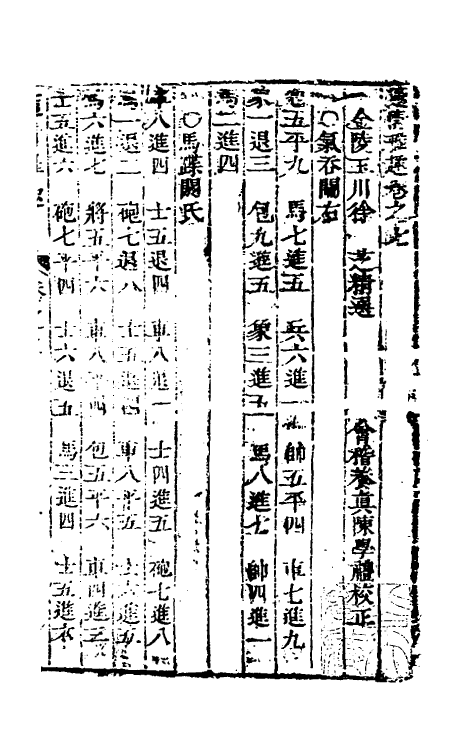 適情雅趣卷之七
金陵玉川徐 芝精選 會稽養眞陳學禮校正
〇氣吞關右
炮五平九 馬七進五 兵六進一 帥五平四 車七進九
象一退三 包九進五 象三進五 馬八進七 帥四進一
馬二進四
〇馬蹀閼氏
車八進四 士五退四 車八退一 士四進五 砲七進八
馬一退二 砲七退八 士五進四 車八平五 士六進五
馬六進七 將五平六 車八平四 包五平六 車四進三
士五進六 砲七平四 士六退五 馬三進四 士五進六